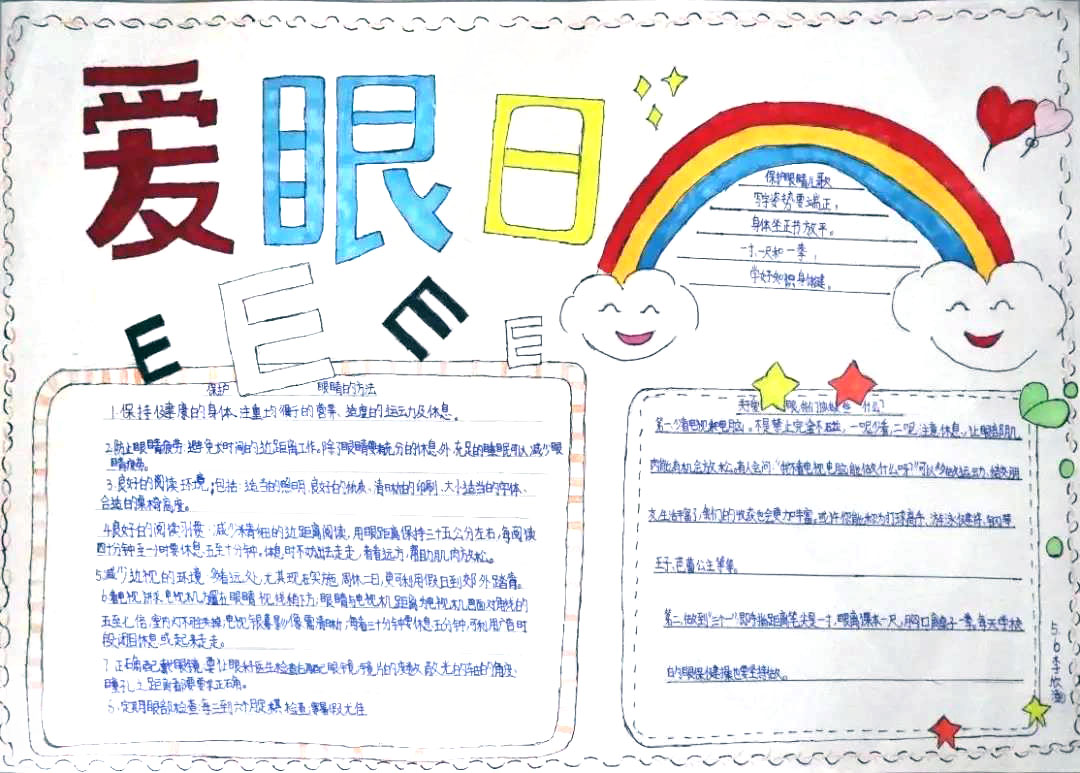 爱眼日
E E E E
保护眼睛儿歌
写字姿势要端正，
身体坐正书放平。
一寸、一尺和一拳，
学好知识身体健。
保护 眼睛的方法
1.保持健康的身体、注重均衡的营养、适度的运动及休息。
2.防止眼睛疲劳:避免长时间的近距离工作。除了眼睛要有充分的休息外,充足的睡眠可以减少眼
睛疲劳。
3.良好的阅读环境,包括:适当的照明,良好的纸质、清晰的印刷、大小适当的字体、
合适的桌椅高度。
4.良好的阅读习惯:减少精细的近距离阅读,用眼距离保持三十五公分左右,每阅读
四十分钟至一小时要休息五至十分钟。休息时不妨出去走走,看看远方,帮助肌肉放松。
5.减少近视的环境:多看远处,尤其现在实施周休二日,更可利用假日到郊外踏青。
6.看电视时,电视机为摆在眼睛视线稍下方;眼睛与电视机距离为电视机画面对角线的
五至七倍,室内灯不能关掉,电视
每看三十分钟要休息五分钟,可利用广告时
段闭目休息或起来走走。
7.正确配戴眼镜:要让眼科医生检查
眼镜,镜片的度数、散光的
角度、
瞳孔之距离都要求正确。
8.定期眼部检查:每三到六个月定期检查,寒暑假尤佳
眼,我们应该 什么?
第一,少看电视和电脑。不是禁止完全不碰,一呢少看,二呢注意休息。让眼部肌
肉能有机会放松。有人会问:“我不看电视电脑能做什么呀?”可以多做运动,结交朋
友,生活丰富了,我们的收获也会更加丰富。或许你能成为打球高手、游泳健将、
王子、芭蕾公主等等。
第二,做到“三个一”即手指距离笔尖是一寸,眼离课本一尺,胸口离桌子一拳。每天学校
的眼保健操也要坚持做。
5.6李欣